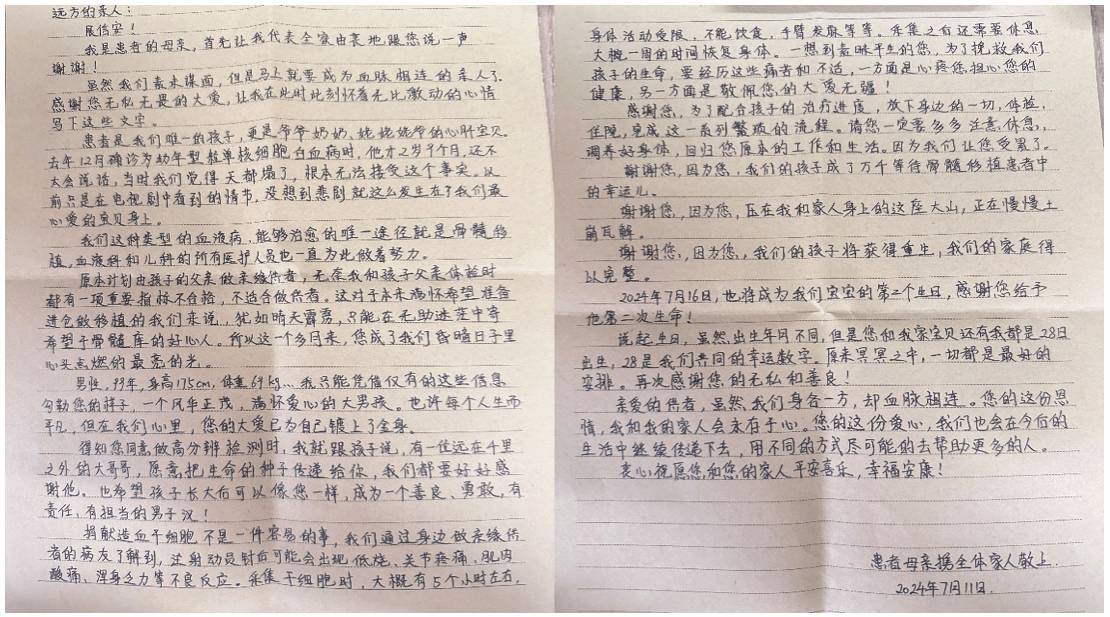 远方的亲人：
展信安！
我是患者的母亲，首先让我代表全家由衷地跟您说一声
谢谢！
虽然我们素未谋面，但是马上就要成为血脉相连的亲人了。
感谢您无私无畏的大爱，让我在此时此刻怀着无比激动的心情
写下这些文字。
患者是我们唯一的孩子，更是爷爷奶奶、姥姥姥爷的心肝宝贝。
去年12月确诊为幼年型粒单核细胞白血病时，他才2岁9个月，还不
太会说话，当时我们觉得天都塌了，根本无法接受这个事实。以
前只是在电视剧中看到的情节，没想到悲剧就这么发生在了我们最
心爱的宝贝身上。
我们这种类型的血液病，能够治愈的唯一途径就是骨髓移
植，血液科和儿科的所有医护人员也一直为此做着努力。
原本计划由孩子的父亲做亲缘供者，无奈我和孩子父亲体检时
都有一项重要指标不合格，不适合做供者。这对于本来满怀希望准备
进仓做移植的我们来说，犹如晴天霹雳，只能在无助迷茫中寄
希望于骨髓库的好心人。所以这一个多月来，您成了我们昏暗日子里
心头点燃的最亮的光。
男性，99年，身高175cm，体重69kg...我只能凭借仅有的这些信息
勾勒您的样子，一个风华正茂，满怀爱心的大男孩。也许每个人生而
平凡，但在我们心里，您的大爱已为自己镀上了全身。
得知您同意做高分辨检测时，我就跟孩子说，有一位远在千里
之外的大哥哥，愿意把生命的种子传递给你，我们都要好好感
谢他。也希望孩子长大后可以像您一样，成为一个善良、勇敢，有
责任，有担当的男子汉！
捐献造血干细胞不是一件容易的事，我们通过身边做亲缘供
者的病友了解到，注射动员针后可能会出现低烧、关节疼痛、肌肉
酸痛、浑身乏力等不良反应。采集干细胞时，大概有5个小时左右，
身体活动受限，不能饮食，手臂发麻等等。采集之后还需要休息
大概一周的时间恢复身体。一想到素昧平生的您，为了挽救我们
孩子的生命，要经历这些痛苦和不适，一方面是心疼您担心您的
健康，另一方面是敬佩您的大爱无疆！
感谢您，为了配合孩子的治疗进度，放下身边的一切，体检，
住院，完成这一系列繁琐的流程。请您一定要多多注意休息，
调养好身体，回归您原本的工作和生活。因为我们让您受累了。
谢谢您，因为您，我们的孩子成了万千等待骨髓移植患者中
的幸运儿。
谢谢您，因为您，压在我和家人身上的这座大山，正在慢慢土
崩瓦解。
谢谢您，因为您，我们的孩子将获得重生，我们的家庭得
以完整。
2024年7月16日，也将成为我们宝宝的第2个生日，感谢您给予
他第二次生命！
说起生日，虽然出生年月不同，但是您和我家宝贝还有我都是28日
出生，28是我们共同的幸运数字。原来冥冥之中，一切都是最好的
安排。再次感谢您的无私和善良！
亲爱的供者，虽然我们身各一方，却血脉相连。您的这份恩
情，我和我的家人会永存于心。您的这份爱心，我们也会在今后的
生活中继续传递下去，用不同的方式尽可能的去帮助更多的人。
衷心祝愿您和您的家人平安喜乐，幸福安康！
患者母亲携全体家人敬上
2024年7月11日.